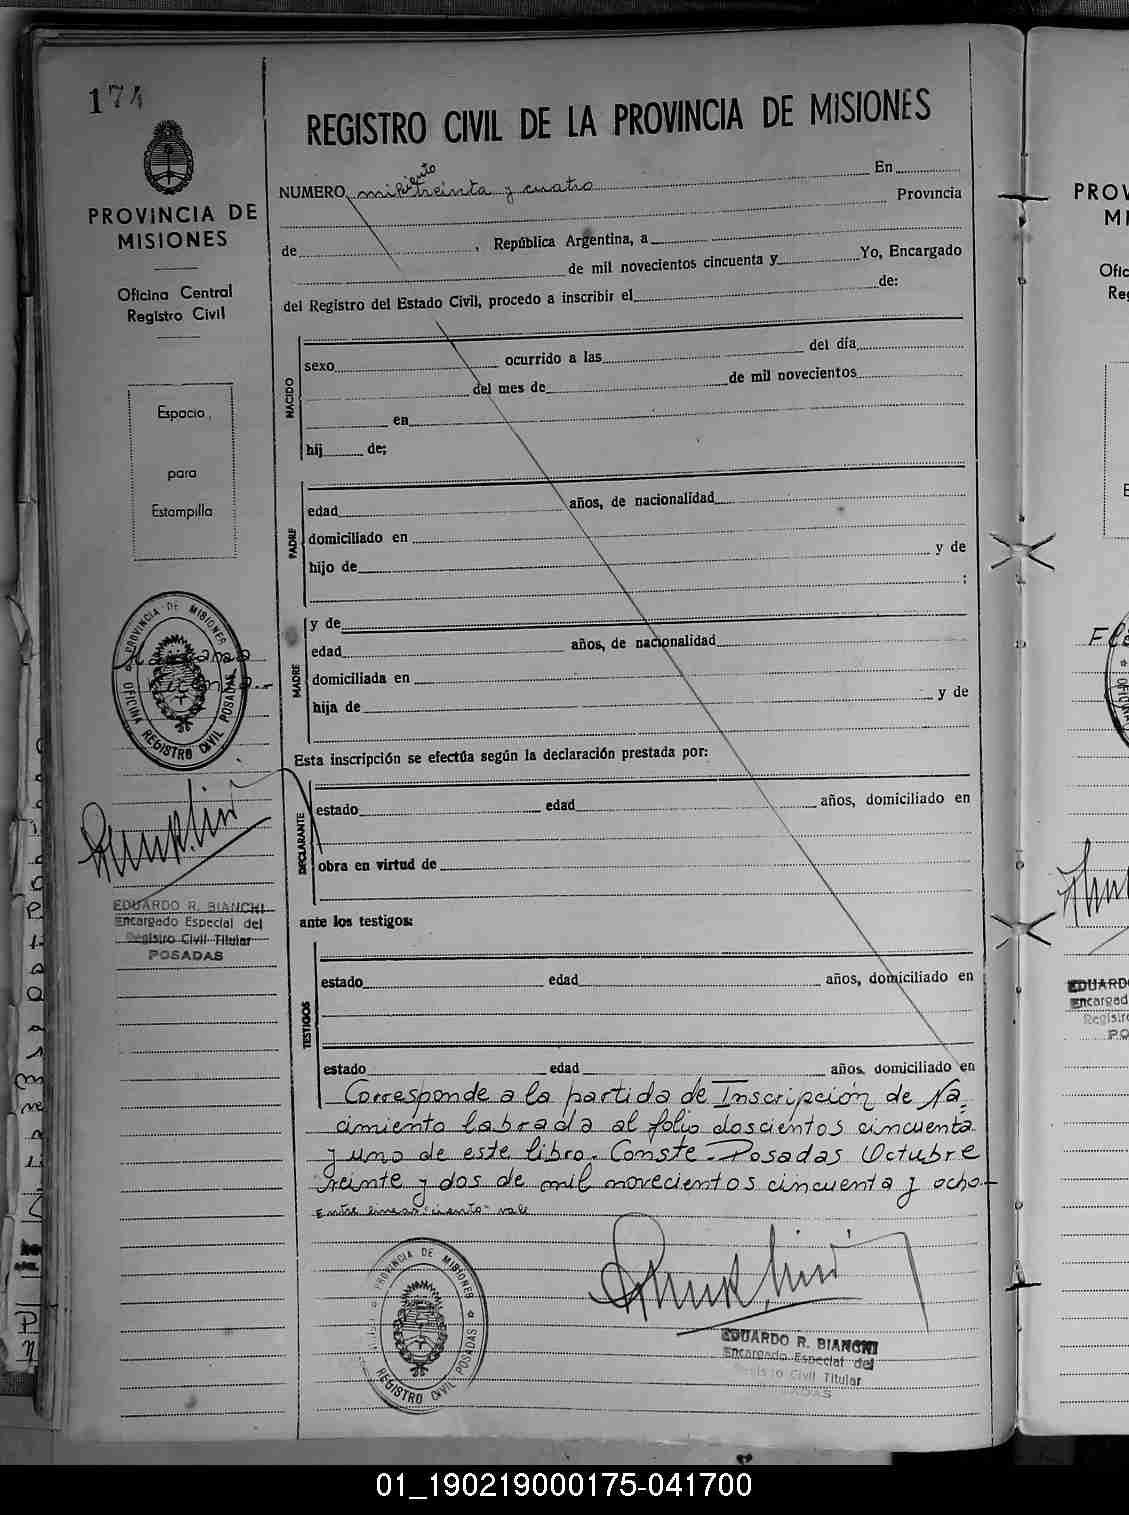 174
PROVINCIA DE
MISIONES
Oficina Central
Registro Civil
Espacio
para
Estampilla
PROVINCIA DE MISIONES
OFICINA REGISTRO CIVIL POSADAS
EDUARDO R. BIANCHI
Encargado Especial del
Registro Civil Titular
POSADAS
REGISTRO CIVIL DE LA PROVINCIA DE MISIONES
NUMERO mil ciento treinta y cuatro En
Provincia
de , República Argentina, a
de mil novecientos cincuenta y Yo, Encargado
del Registro del Estado Civil, procedo a inscribir el de:
NACIDO
sexo ocurrido a las del día
del mes de de mil novecientos
en
hij de:
PADRE
edad años, de nacionalidad
domiciliado en
hijo de y de
;
MADRE
y de
edad años, de nacionalidad
domiciliada en
hija de y de
Esta inscripción se efectúa según la declaración prestada por:
DECLARANTE
estado edad años, domiciliado en
obra en virtud de
ante los testigos:
TESTIGOS
estado edad años, domiciliado en
estado edad años, domiciliado en
Corresponde a la partida de Inscripción de Na
cimiento labrada al folio doscientos cincuenta
y uno de este libro. Conste. Posadas Octubre
treinte y dos de mil novecientos cincuenta y ocho.-
Entre lineas "ciento" vale
PROVINCIA DE MISIONES
REGISTRO CIVIL POSADAS
EDUARDO R. BIANCHI
Encargado Especial del
Registro Civil Titular
POSADAS
PROV
MI
Ofic
Reg
E
EDUARDO
Encargad
Registro
PO
01_190219000175-041700